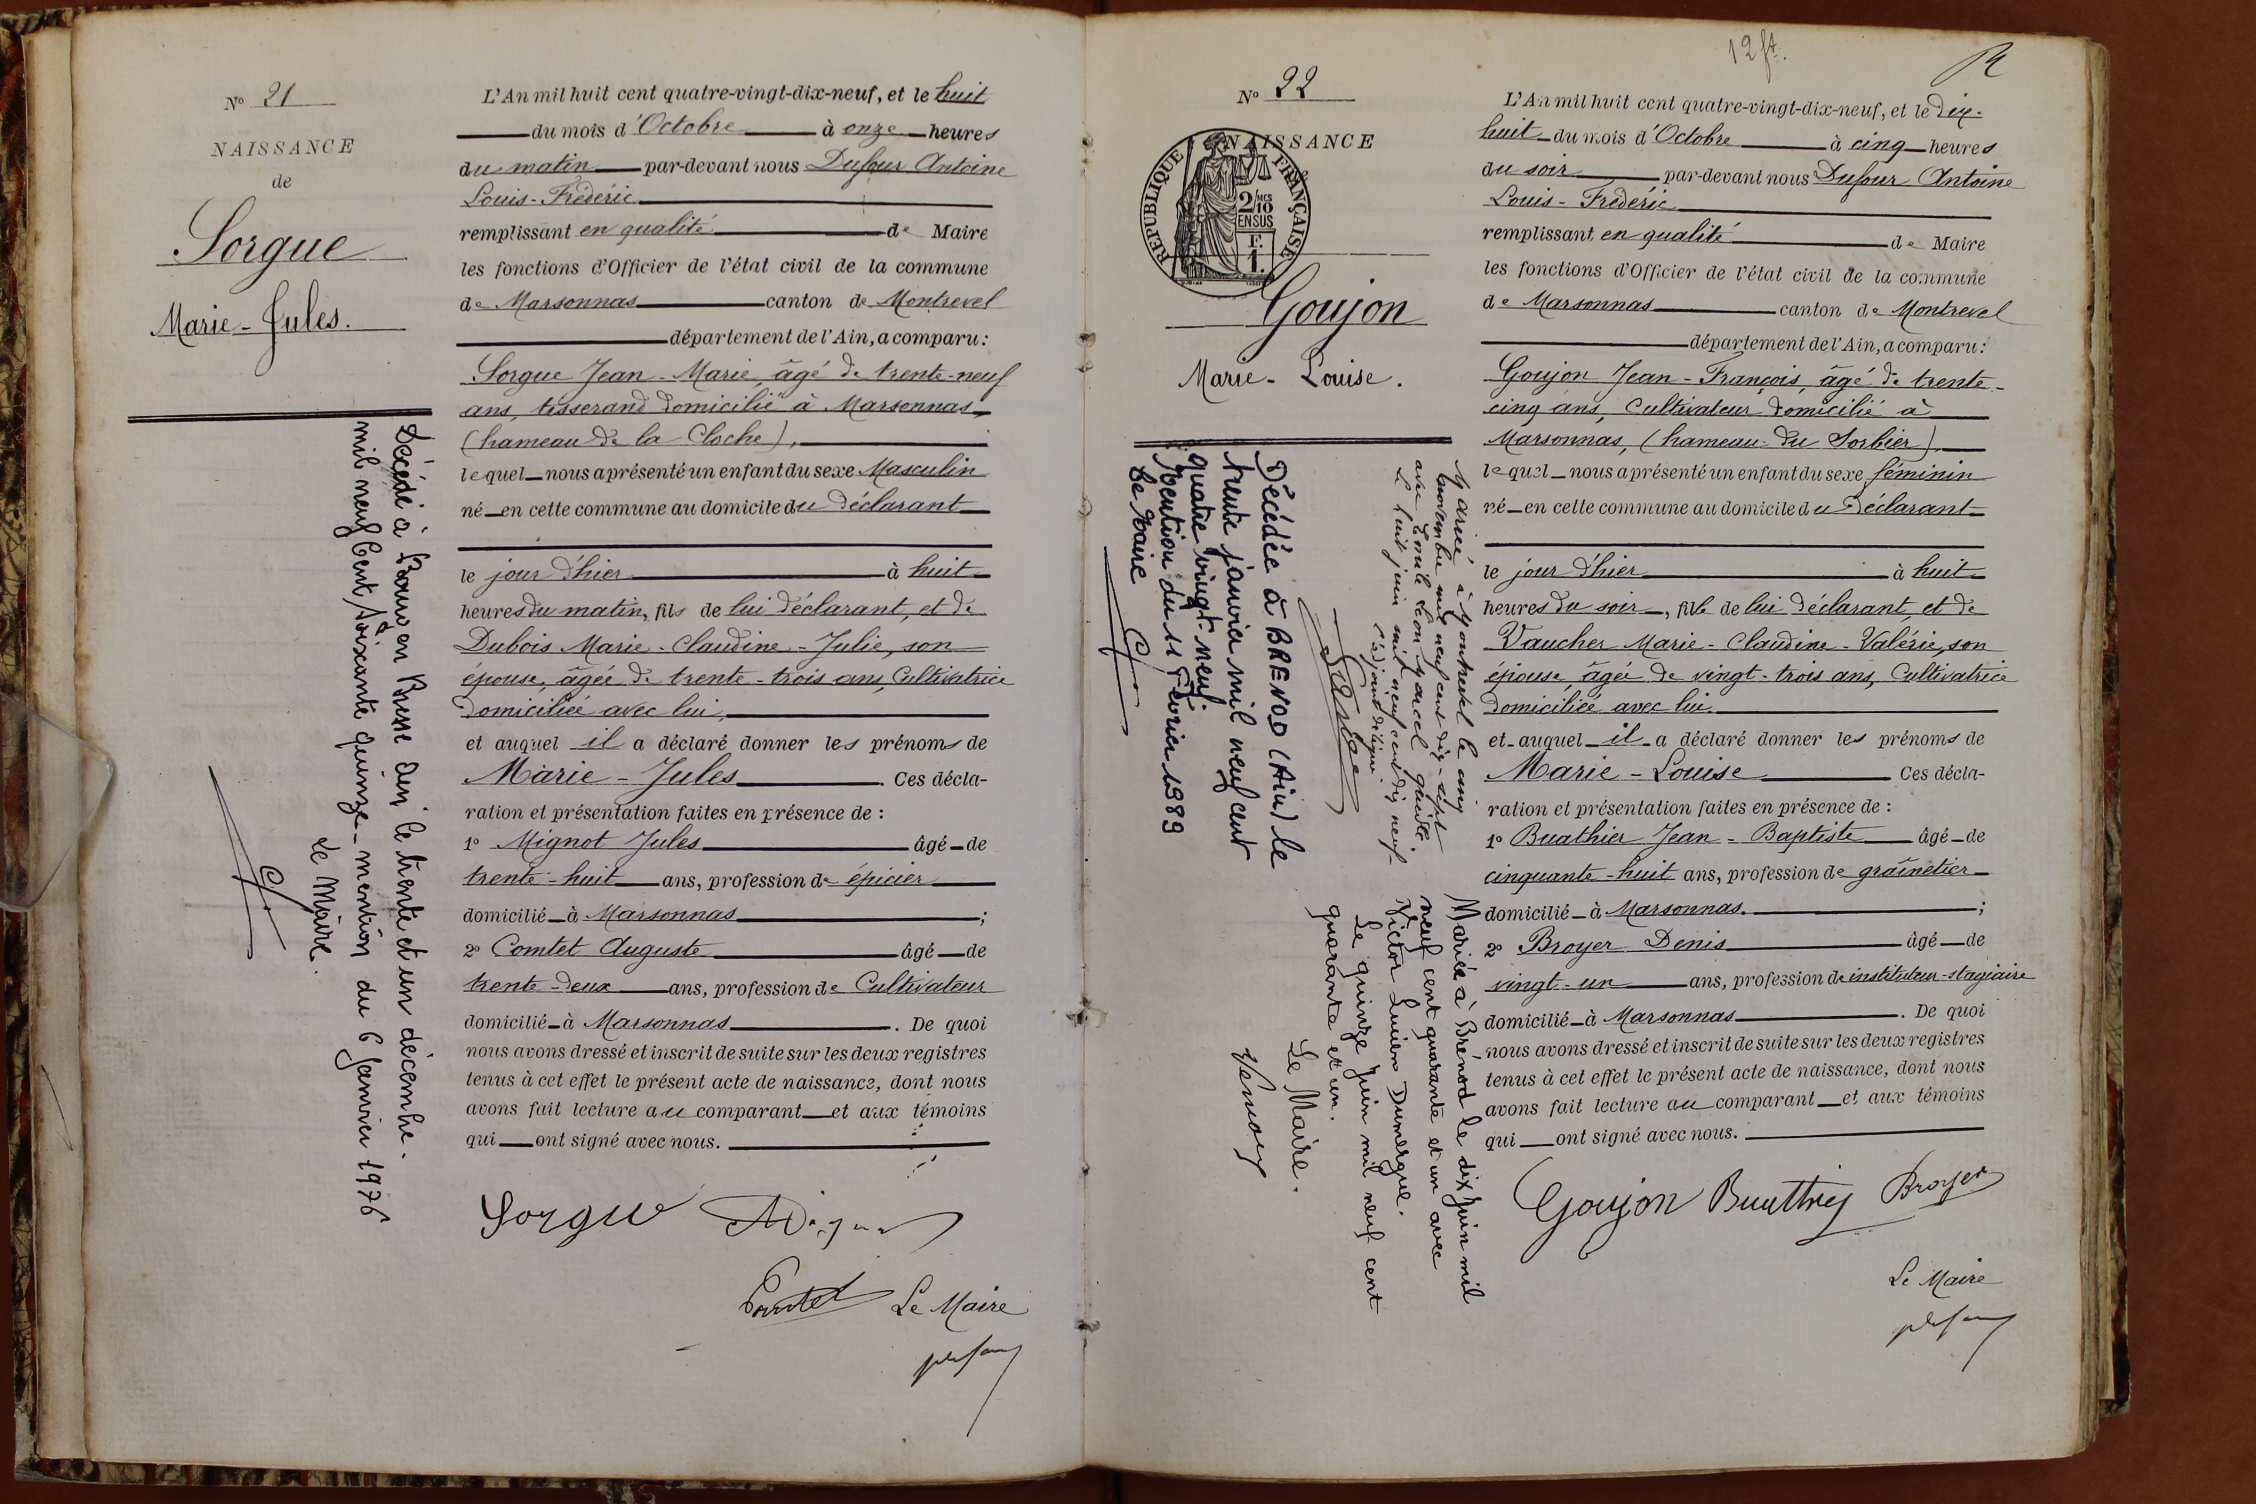 N° 21
NAISSANCE
de
Sorgue
Marie-Jules.
L'An mil huit cent quatre-vingt-dix-neuf, et le huit
du mois d'Octobre à onze heures
du matin par-devant nous Dufour Antoine
Louis-Frédéric
remplissant en qualité de Maire
les fonctions d'Officier de l'état civil de la commune
de Marsonnas canton de Montrevel
département de l'Ain, a comparu:
Sorgue Jean-Marie, âgé de trente-neuf
ans, tisserand domicilié à Marsonnas
(hameau de la Cloche),
lequel nous a présenté un enfant du sexe Masculin
né en cette commune au domicile du déclarant
le jour d'hier à huit
heures du matin, fils de lui déclarant, et de
Dubois Marie-Claudine-Julie, son
épouse, âgée de trente-trois ans, Cultivatrice
domiciliée avec lui,
et auquel il a déclaré donner les prénoms de
Marie-Jules. Ces décla-
ration et présentation faites en présence de :
1° Mignot Jules âgé de
trente-huit ans, profession de épicier
domicilié à Marsonnas ;
2° Comtet Auguste âgé de
trente-deux ans, profession de Cultivateur
domicilié à Marsonnas. De quoi
nous avons dressé et inscrit de suite sur les deux registres
tenus à cet effet le présent acte de naissance, dont nous
avons fait lecture au comparant et aux témoins
qui ont signé avec nous.
Sorgue Mignot
Comtet Le Maire
Décédé à Bourg en Bresse Ain le trente et un décembre
mil neuf Cent Soixante quinze - mention du 6 Janvier 1976
Le Maire.
12 ft.
N° 22
NAISSANCE
de
RÉPUBLIQUE FRANÇAISE
2/10 MES
EN SUS
F.
1.
Goujon
Marie-Louise.
L'An mil huit cent quatre-vingt-dix-neuf, et le dix-
huit du mois d'Octobre à cinq heures
du soir par-devant nous Dufour Antoine
Louis-Frédéric
remplissant en qualité de Maire
les fonctions d'Officier de l'état civil de la commune
de Marsonnas canton de Montrevel
département de l'Ain, a comparu:
Goujon Jean-François, âgé de trente-
cinq ans, Cultivateur domicilié à
Marsonnas, (hameau du Sorbier)
lequel nous a présenté un enfant du sexe féminin
né en cette commune au domicile du déclarant
le jour d'hier à huit
heures du soir, fille de lui déclarant, et de
Vaucher Marie-Claudine-Valérie, son
épouse, âgée de vingt-trois ans, Cultivatrice
domiciliée avec lui.
et auquel il a déclaré donner les prénoms de
Marie-Louise Ces décla-
ration et présentation faites en présence de :
1° Buathier Jean-Baptiste âgé de
cinquante-huit ans, profession de grainetier
domicilié à Marsonnas. ;
2 Broyer Denis âgé de
vingt-un ans, profession de instituteur-stagiaire
domicilié à Marsonnas. De quoi
nous avons dressé et inscrit de suite sur les deux registres
tenus à cet effet le présent acte de naissance, dont nous
avons fait lecture au comparant et aux témoins
qui ont signé avec nous.
Goujon Buathier Broyer
Le Maire
Mariée à Montrevel le cinq
novembre mil neuf cent dix-sept
avec Emile Léon Marcel
Le huit juin mil neuf cent dix neuf
L'adjoint délégué.
Mariée à Brénod le dix Juin mil
neuf cent quarante et un avec
Victor Lucien Dumergue.
Le quinze Juin mil neuf cent
quarante et un.
Le Maire.
Décédée à BRENOD (Ain) le
trente janvier mil neuf cent
quatre vingt-neuf.
Mention du 11 Février 1989
Le Maire